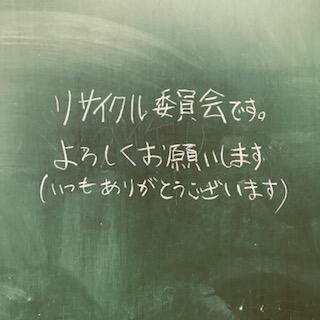 リサイクル委員会です。
よろしくお願いします
(いつもありがとうございます)